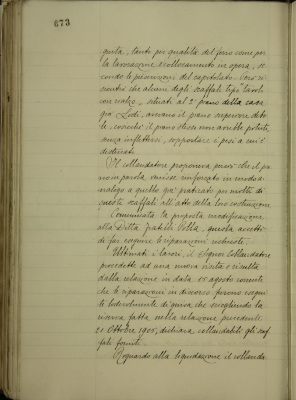 673
guita, tanto per qualità del ferro come per
la lavorazione e collocamento in opera, se
condo le prescrizioni del capitolato. Però ri
scontrò che alcuni degli scaffali tipo tavole
con rialzo, situati al 2° piano della casa
già Lodi, avevano il piano superiore debo
le, cosicchè il piano stesso non avrebbe potuto,
senza inflettersi, sopportare i pesi a cui è
destinato.
Il collaudatore proponeva perciò che il pia
no in parola venisse rinforzato in modo a
nalogo a quello già praticato per molti di
cotesti scaffali all'atto della loro costruzione.
Comunicata la proposta modificazione
alla Ditta fratelli Polla, questa accettò
di far eseguire le riparazioni richieste.
Ultimati i lavori, il Signor Collaudatore
procedette ad una nuova visita e risulta
dalla relazione in data 15 agosto corrente
che le riparazioni in discorso furono esegui
te lodevolmente di guisa che sciogliendo la
riserva fatta nella relazione precedente
21 Ottobre 1905, dichiara collaudabili gli scaf
fali forniti.
Riguardo alla liquidazione il collauda